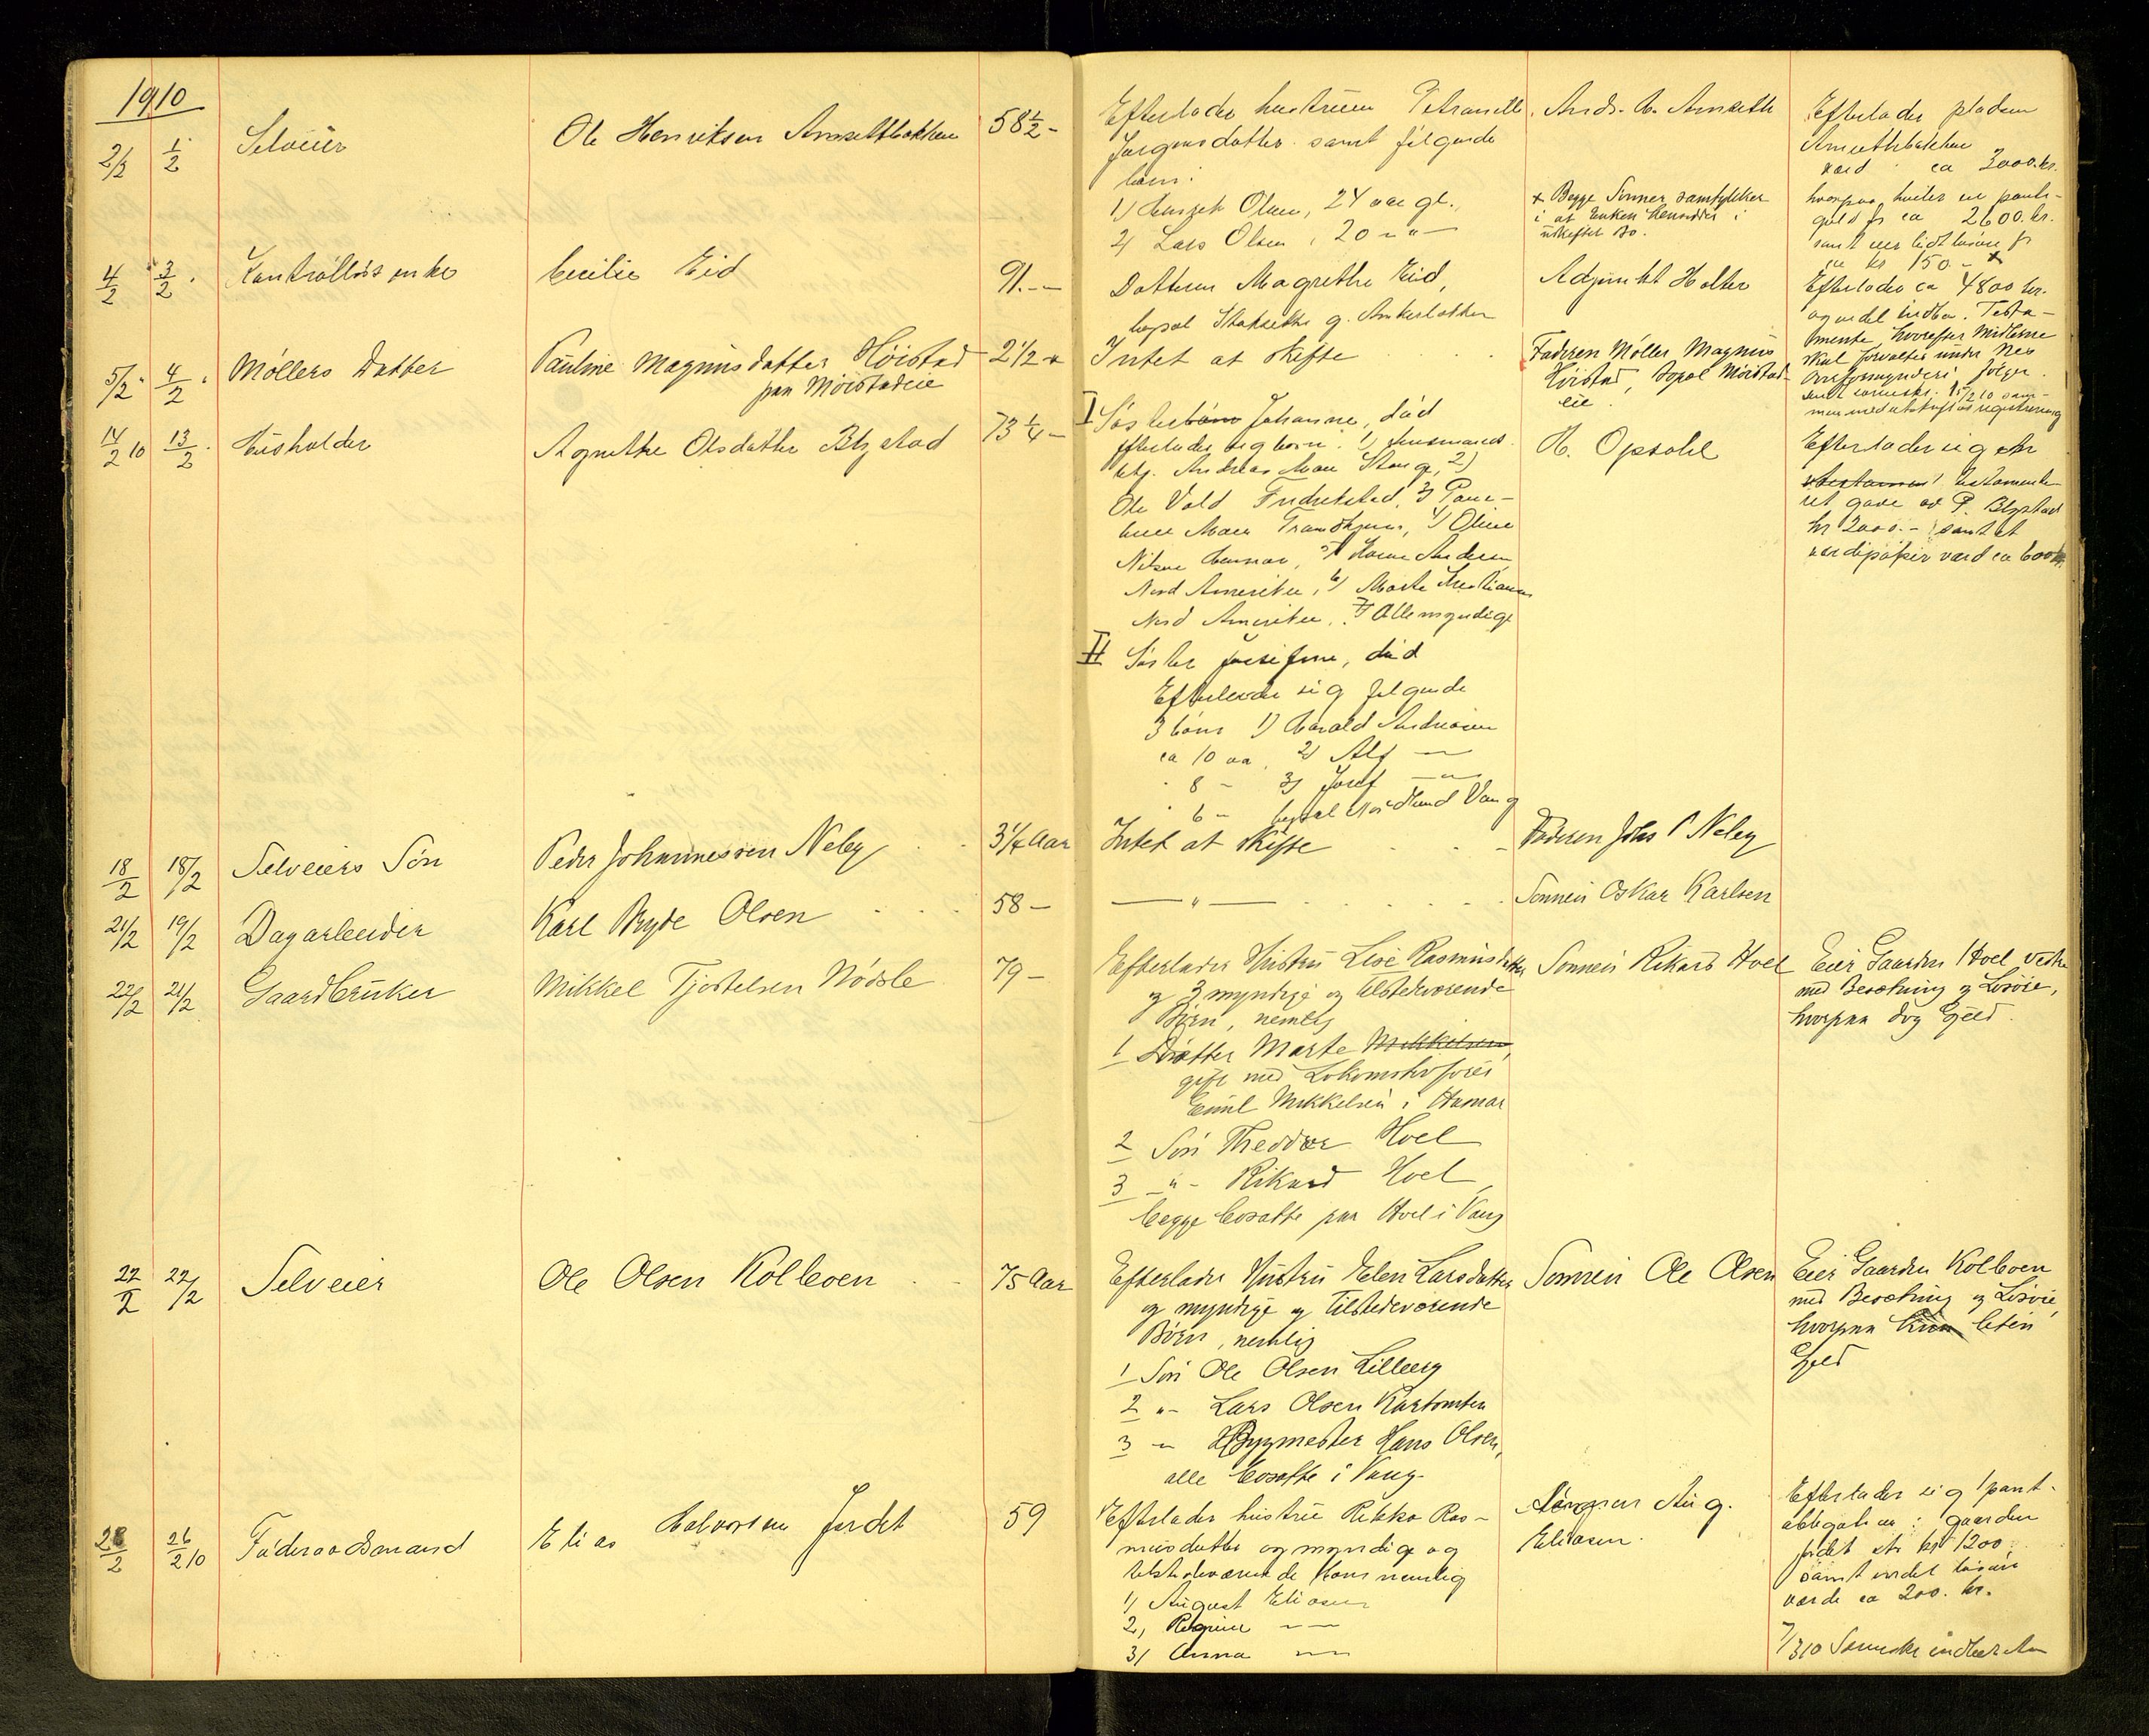 1910
2/2 1/2 Selveier Ole Henriksen Amsethbakken 58½ -
4/2 3/2 Kontrollørs enke Cecilie Eid 91.--
5/2 4/2 Møllers Datter Pauline Magnusdatter Høistad 2½ -
paa Moistadeie
14/2 10 13/2 Husholder Agnethe Olsdatter Blystad 73¼ -
18/2 18/2 Selveiers Søn Peder Johannessen Neby 3¼ Aar
21/2 19/2 Dagarbeider Karl Bryde Olsen 58 -
22/2 21/2 Gaardbruker Mikkel Tjostelsen Nödsle 79 -
22/2 22/2 Selveier Ole Olsen Kolboen 75 Aar
28/2 26/2 10 Føderaadsmand Elias Halvorsen Jordet 59
Efterlader hustruen
Jørgensdatter samt følgende
børn:
1) Olsen, 24 aar gl.
2) Lars Olsen, 20 - " -
Datteren Magrethe Eid,
bopæl
Intet at skifte
I Søster Johanne, død
efterlader sig børn: 1)
Andreas Moe Stange, 2)
Ole Vold Fredrikstad, 3)
Moe Trondhjem, 4) Oline
Nilsen Hamar, 5) Andersen
Nord Amerika, 6) Marte Kristiansen
Nord Amerika. Alle myndige
II Søster Josefine, død
Efterlader sig følgende
3 børn 1) Harald Andreasen
ca 10 aar, 2) Alf - " -
" 8 - 3) Josef - " -
" 6 - bopæl Vang
Intet at skifte
- " -
Efterlader Hustru Lise Rasmusdatter
og 3 myndige og tilstedeværende
Børn, nemlig
1 Datter Marte Mikkelsen,
gift med Lokomotivfører
Emil Mikkelsen i Hamar
2 Søn Theodor Hoel
3 -"- Rikard Hoel
begge bosatte paa Hoel i Vang
Efterlader Hustru Elen Larsdatter
og myndige og tilstedeværende
Børn, nemlig
1 Søn Ole Olsen Lilleeng
2 "- Lars Olsen
3 - Bygmester Hans Olsen,
alle bosatte i Vang.
Efterlader hustru Rikka Ras-
musdatter og myndige og
tilstedeværende børn nemlig
1) August Eliasen
2) Regine - " -
3) Anna - " -
Ands. A. Amseth
x Begge Sønner samtykker
i at Enken hensidder i
uskiftet Bo.
Adjunkt Holter
Faderen Møller Magnus
Høistad, bopæl Moistad-
eie.
H. Opsahl
Faderen Johs P Neby
Sønnen Oskar Karlsen
Sønnen Rikard Hoel
Sønnen Ole Olsen
Sønnen Aug.
Eliasen.
Efterlader pladsen
Amsethbakken
værd ca 3000.kr.
hvorpaa hviler en pante-
gjeld for ca 2600.kr.
samt løsøre for
ca kr 150.- x
Efterlader ca 4800 kr.
og endel indbo. Testa-
mente hvorefter Midlerne
skal forvaltes under Nes
Overformynderi
Efterlader sig
testamente-
ret gave av P. Blystad
kr 2000.- samt et
verdipapir værd ca 600 kr.
Eier Gaarden Hoel vestre
med Besætning og Løsøre,
hvorpaa dog Gjeld.
Eier Gaarden Kolboen
med Besætning og Løsøre,
hvorpaa liten
Gjeld
Efterlader sig 1 pant-
obligation i gaarden
Jordet stor kr 1200,
samt endel løsøre
værdi ca 200. kr.
7/3 10